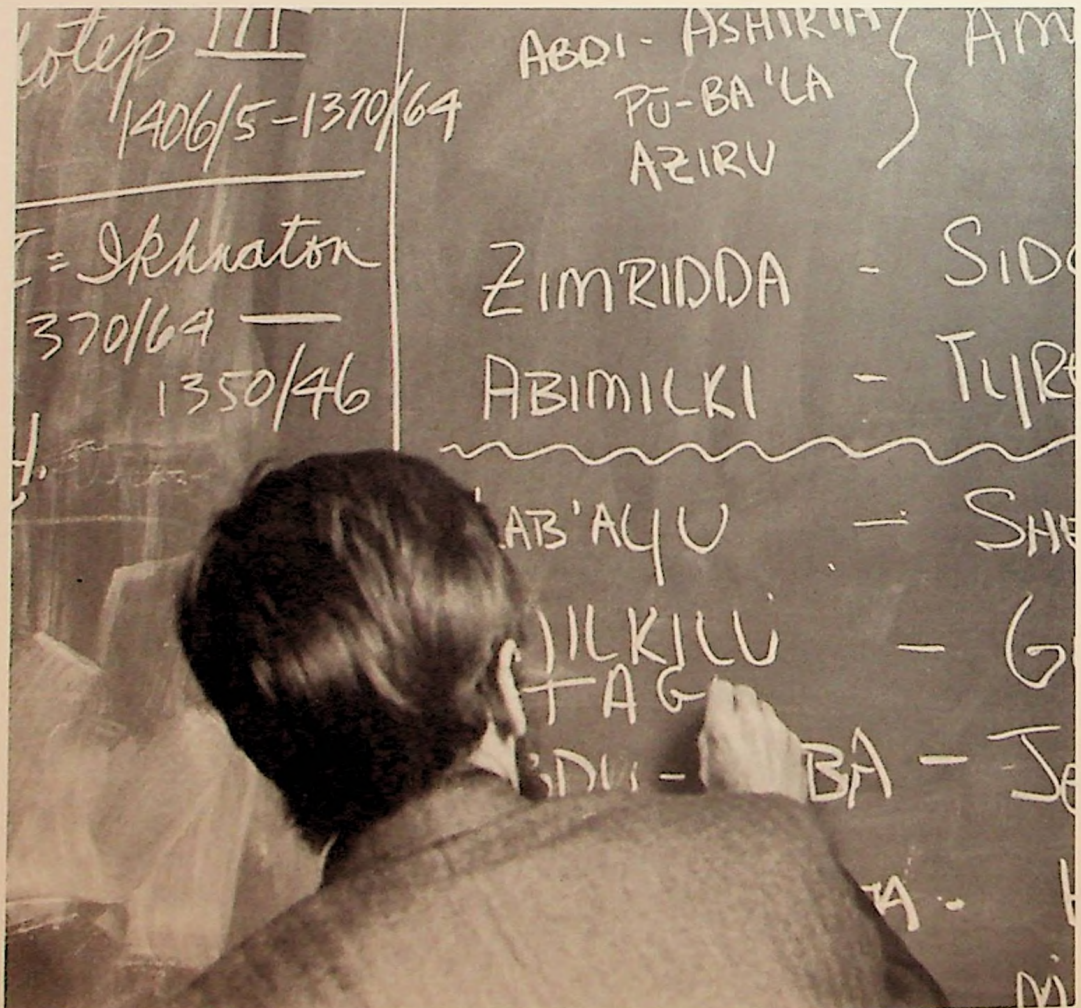 hotep III
1406/5-1370/64
I = Ikhnaton
370/64 —
1350/46
ABDI - ASHIRTA } AM
PŪ-BA'LA
AZIRU
ZIMRIDDA - SIDO
ABIMILKI - TYRE
LAB'AYU — SHE
ILKILU — G
TAG
BDU - BA - JE
A - H